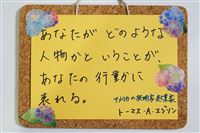 あなたが どのような
人物かと いうことが
あなたの 行動に
表れる。
アメリカの発明家、起業家
トーマス・A・エジソン